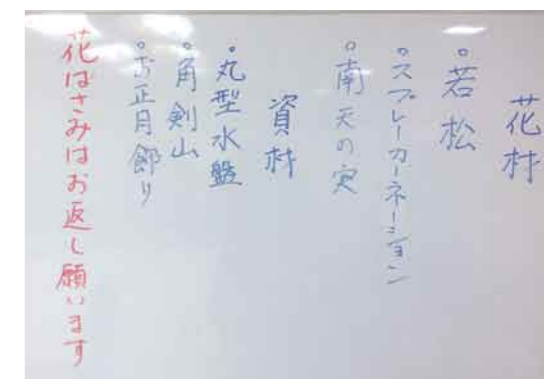 花材
°若松
°スプレーカーネーション
°南天の実
資材
°丸型水盤
°角剣山
°お正月飾り
花はさみはお返し願います